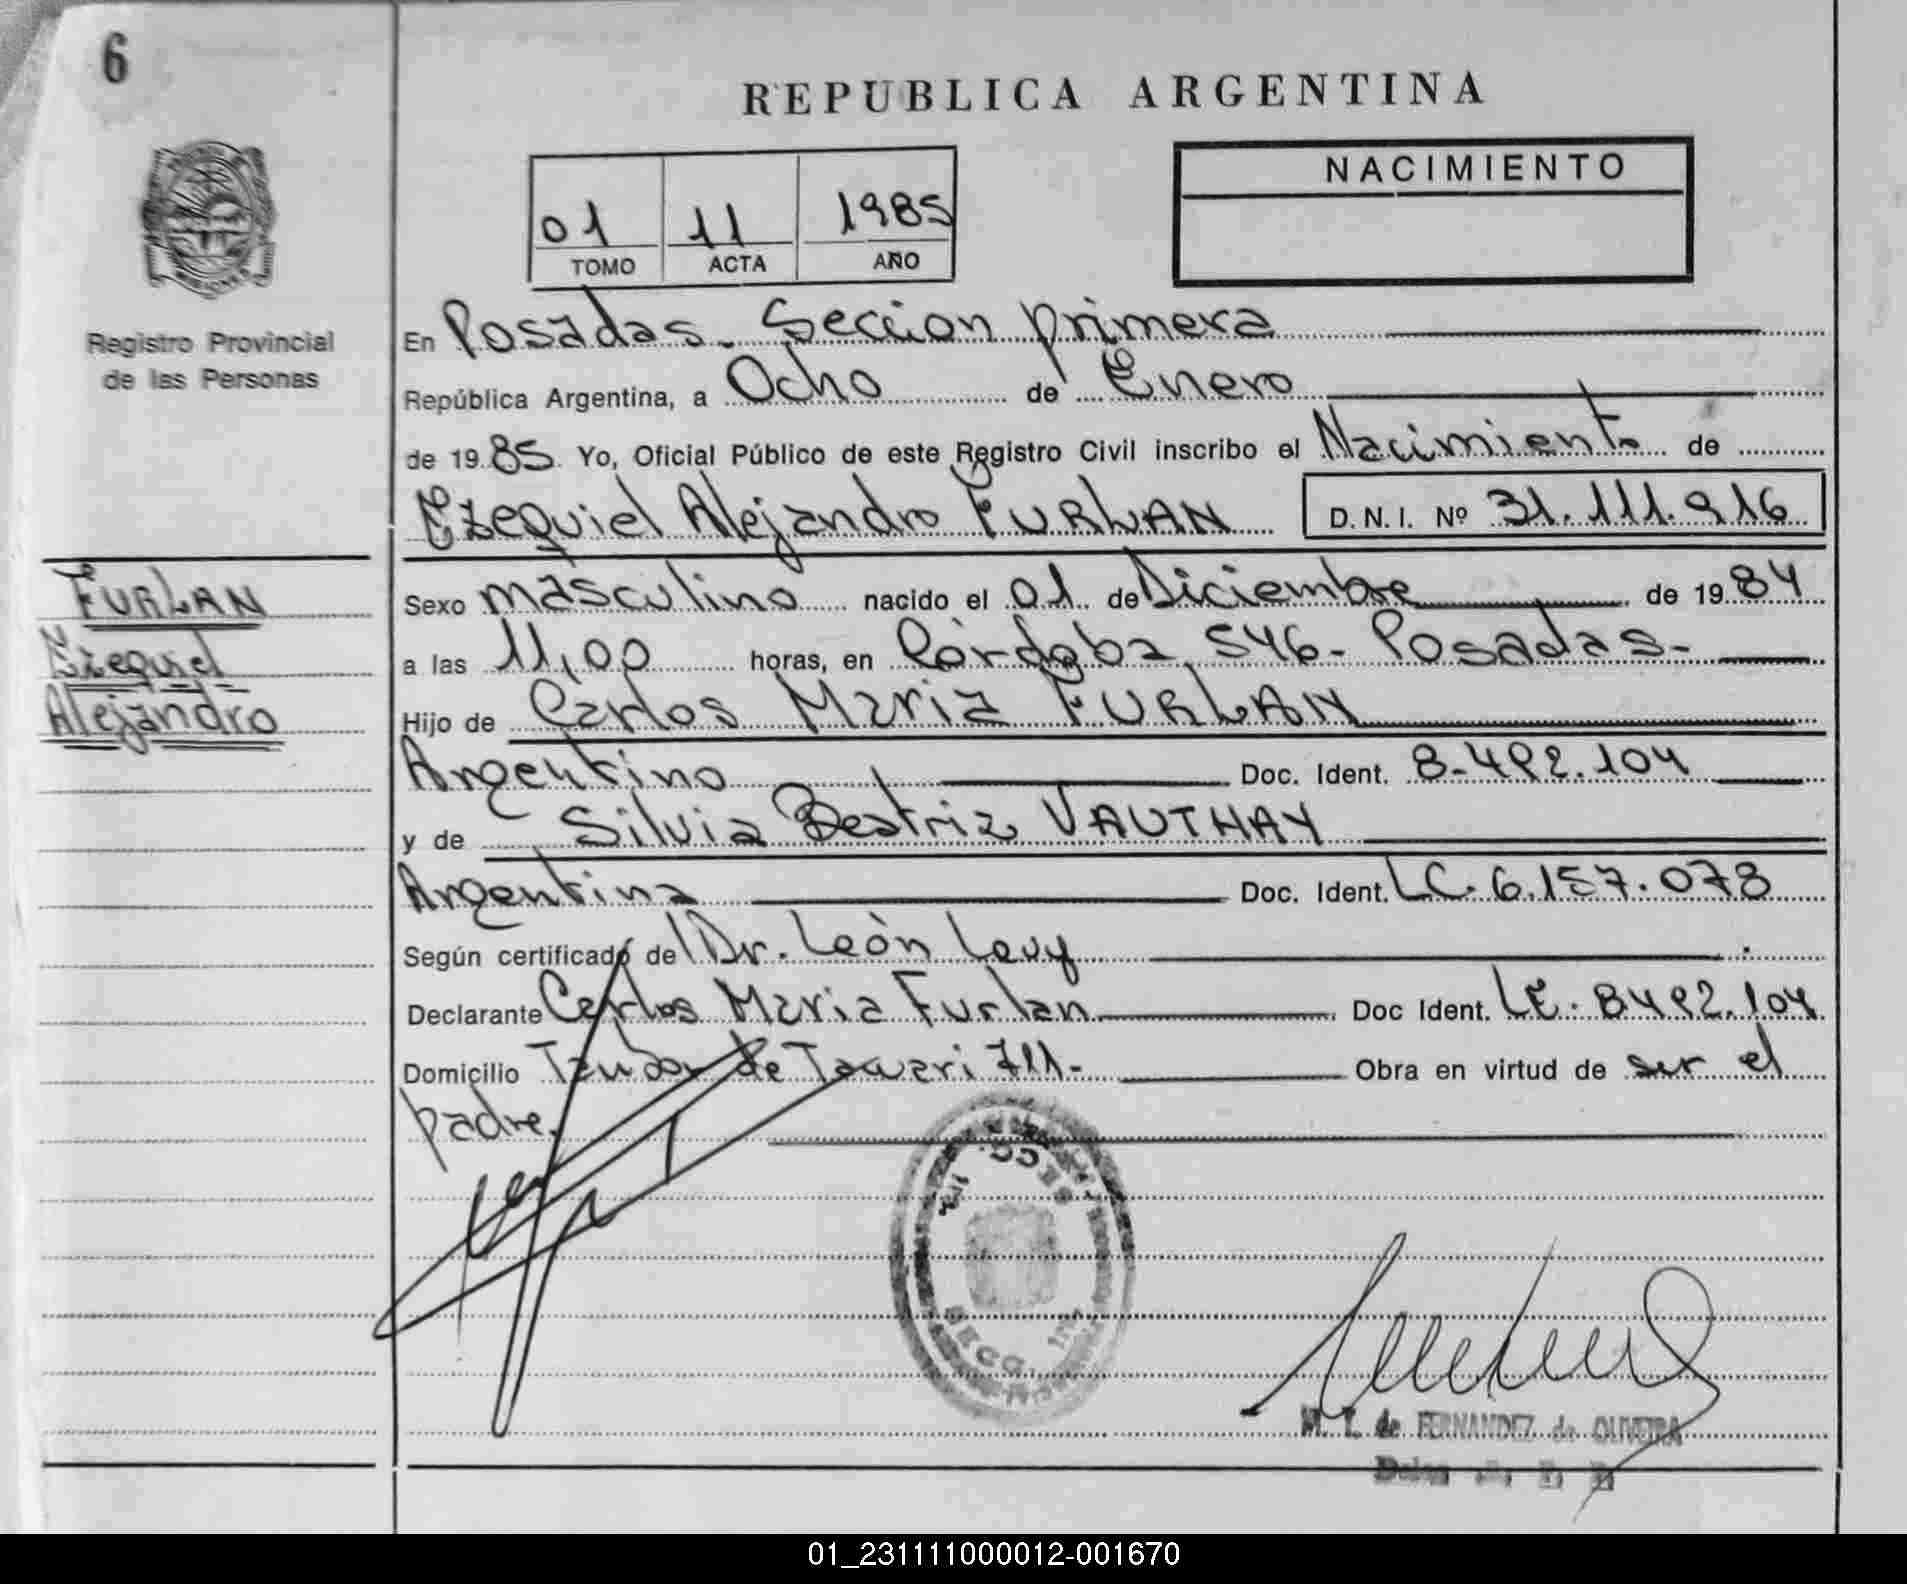 6
REPUBLICA ARGENTINA
NACIMIENTO
01 11 1985
TOMO ACTA AÑO
Registro Provincial
de las Personas
En Posadas. Seccion primera
República Argentina, a Ocho de Enero
de 1985 Yo, Oficial Público de este Registro Civil inscribo el Nacimiento de
Ezequiel Alejandro FURLAN D.N.I. Nº 31.111.916
FURLAN
Ezequiel
Alejandro
Sexo masculino nacido el 01 de Diciembre de 1984
a las 11,00 horas, en Córdoba 546- Posadas-
Hijo de Carlos Maria FURLAN
Argentino Doc. Ident. 8-492.104
y de Silvia Beatriz VAUTHAY
Argentina Doc. Ident. LC. 6.157.073
Según certificado de Dr. León Levy
Declarante Carlos Maria Furlan Doc Ident. LE. 8492.104
Domicilio de 711- Obra en virtud de ser el
padre.
SECC. 1ra
SECC. 1ra
M. T. de FERNANDEZ de OLIVEIRA
01_231111000012-001670